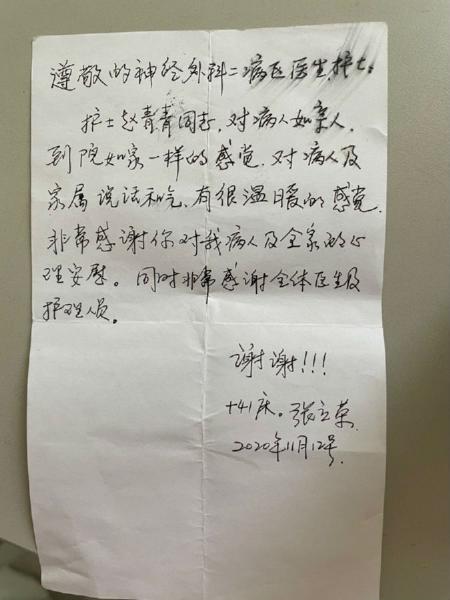 尊敬的神经外科二病区医生护士。
护士赵青青同志，对病人如亲人，
到院如家一样的感觉，对病人及
家属说话和气，有很温暖的感觉，
非常感谢你对我病人及全家的心
理安慰。同时非常感谢全体医生及
护理人员。
谢谢!!!
+41床。张立荣
2020年11月12号